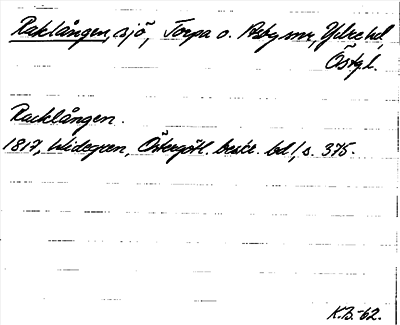 Raklången, sjö, Torpa o. Asby snr, Ydre hd,
Östgl.
Racklången.
1817, Widegren, Östergötl. beskr. bd 1, s. 375.
K.B.-62.